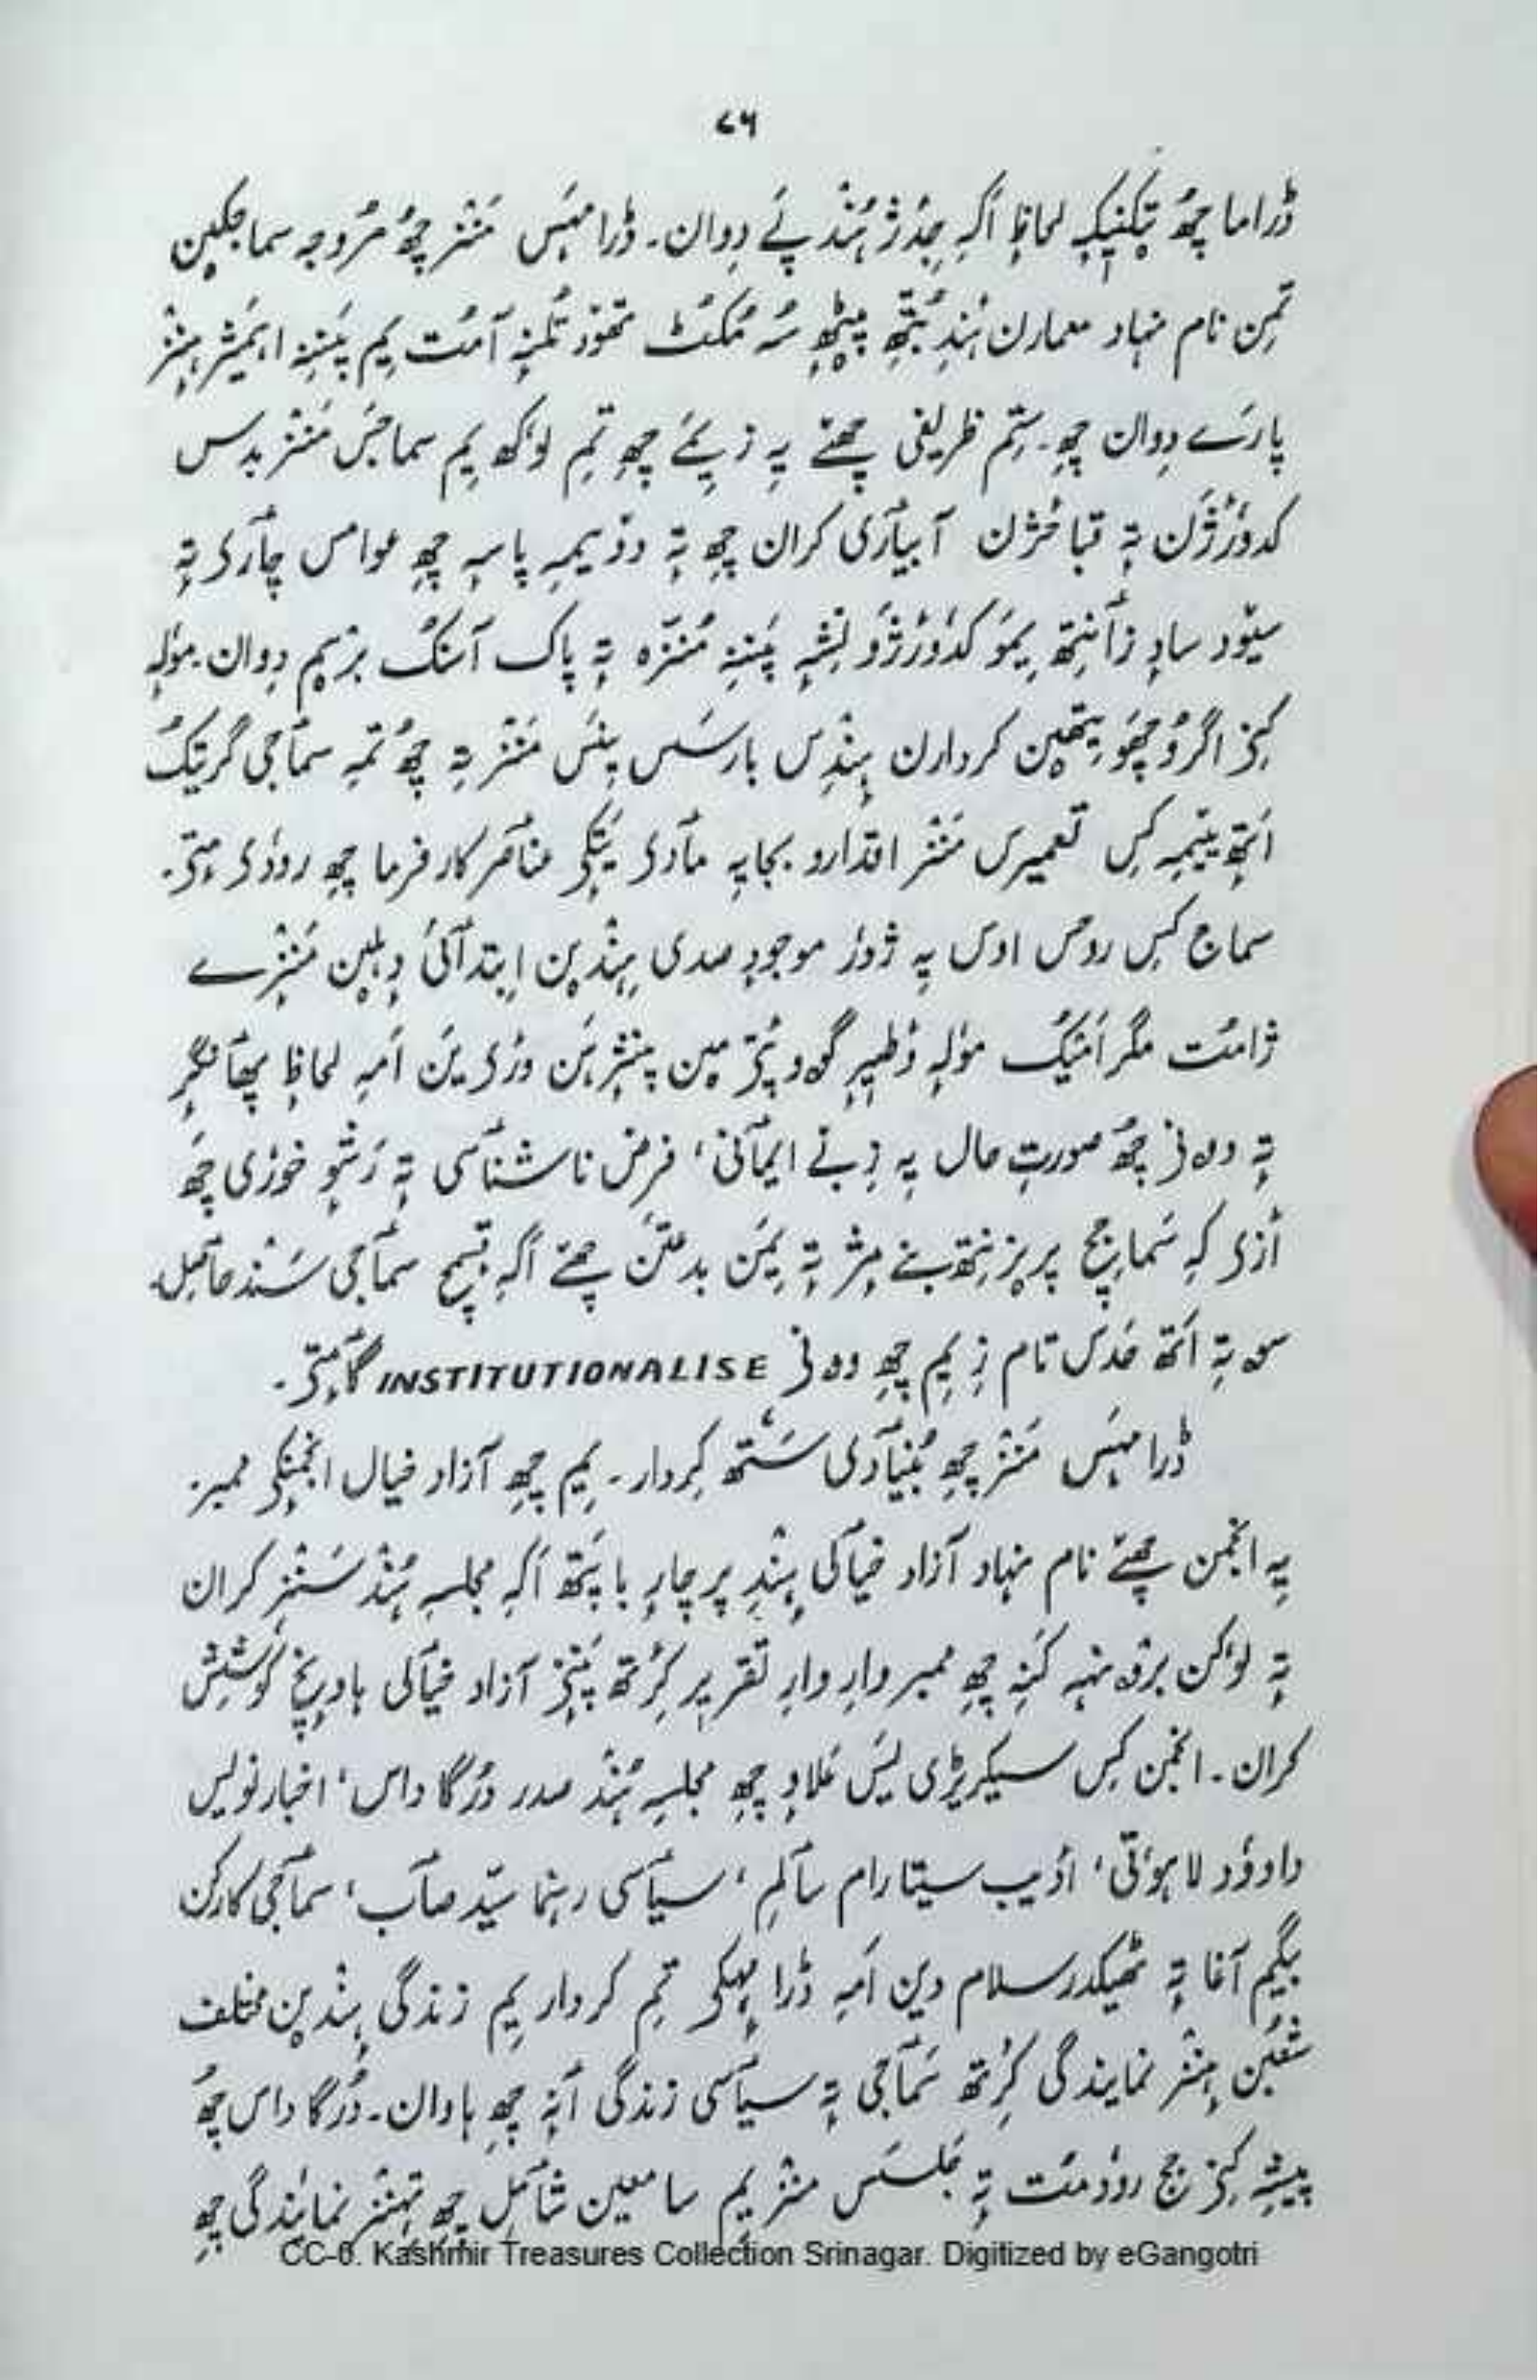 ۷۶
ڈراما چھُ تکنیکہِ لحاظہِ اَکہِ جِدژ ہُنٛد پَے دِوان۔ ڈراماہَس مَنٛز چھُ مُروجہ سماجکین
تِمن نام نہاد معمارن ہُنٛدِ بُتھِ پؠٹھہٕ سُہ مُکھُٹ تھوٚد تُلنہٕ آمُت یِم پَننِہ
پارَے دِوان چھِ۔ ستم ظریفی چھَے یہِ زِ یِمَے چھِ تِم لوٗکھ یِم سماجَس مَنٛز
کدوٗرژن تہٕ قباحژن آبیٲری کران چھِ تہٕ دوٚیمہِ پاسہِ چھِ عوامس چٲری تہٕ
سیوٚد سادٕ زٲنِتھ یِمَو کدوٗرژَو نِشہِ پَننہِ مُنزہ تہٕ پاک آسنُک دِوان۔ موٗلہٕ
کِنۍ اگر وُچھَو یِتھین کردارن ہِنٛدِس بارسَس یِنَس مَنٛز تہِ چھُ تمہِ سمٲجی
تعمیرس مَنٛز اقدارو بجایہِ مٲدی عناصر کار فرما چھِ روٗدۍ مٕتۍ۔
سماج کِس روحس اوس یہِ ژوٗر موجودٕ صدی ہِنٛدین اِبتدٲئی دہلین مَنٛزے
ژامُت مگر اَمیُک موٗلہٕ اَمہِ لحاظہٕ
تہٕ وۄنۍ چھُ صورتِ حال یہِ زِ بے ایمٲنی، فرض ناشنٲسی تہٕ رَشوٕ خوٗری چھَ
اَزۍ کہِ سماجچ پرؠزنتھ بنے مٕژ تہٕ یِمَن بدعتَن چھَے اَکہِ قسمچ سمٲجی سَنَد حٲصِل۔
سۄ تہِ اَتھ حدَس تام زِ یِم چھِ وۄنۍ INSTITUTIONALISE گٲمٕتۍ۔
ڈراماہَس مَنٛز چھِ بُنیٲدی سَتھ کِردار۔ یِم چھِ آزاد خیال انجمنکۍ ممبر۔
یہِ انجمن چھَے نام نہاد آزاد خیٲلی ہِنٛدِ پرچارٕ باپَتھ اَکہِ مجلسہِ ہُنٛد سَنٛز کران
تہٕ لوٗکن برۄنہہ کَنہِ چھِ ممبر وارٕ وارٕ تقریر کٔرِتھ پَننۍ آزاد خیٲلی ہاونچ کوٗشِش
کران۔ انجمن کِس سیکریٹری یَس علاوٕ چھِ مجلسہِ ہُنٛد صدر دُرگا داس، اخبار نویس
داووٗد لاہوٗتی، ادیب سیتا رام سٲلم، سیٲسی رہنما سیّد صٲب، سمٲجی کارکُن
بیگم آغا تہٕ ٹھیکدر سلام دین اَمہِ ڈراماہکۍ تِم کردار یِم زندگی ہِنٛدین مختلف
شعبَن ہِنٛز نمایندگی کٔرِتھ سمٲجی تہٕ سیٲسی زندگی اَنہٕ چھِ ہاوان۔ دُرگا داس چھُ
پیشہِ کِنۍ جج روٗدمُت تہٕ مجلسَس مَنٛز یِم سامعین شٲمل چھِ تِہنٛز نمایندگی چھِ
CC-0. Kashmir Treasures Collection Srinagar. Digitized by eGangotri